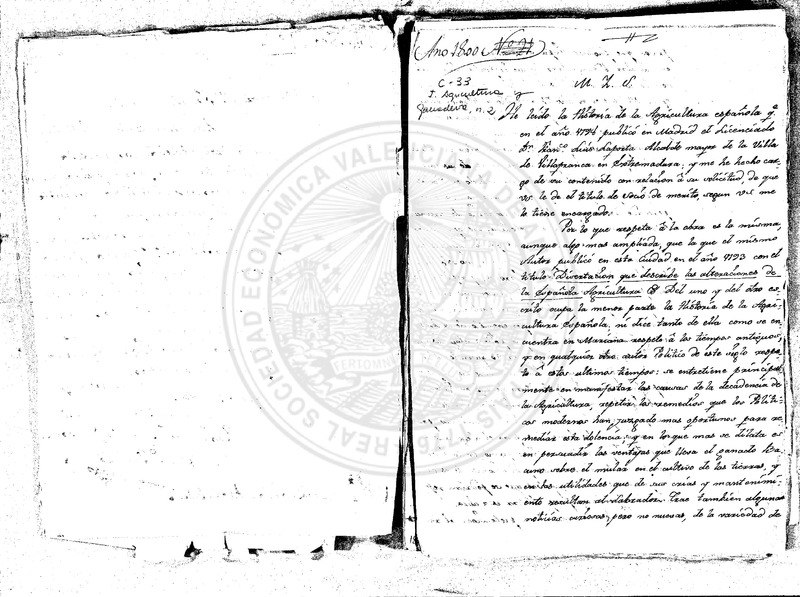 Año 1800 No. 21
C-33
I. Agricultura y
Ganadería, n. 2
M. I. S.
He leido la Historia de la Agricultura española q.e
en el año 1794 publicó en Madrid el Licenciado
D.n Fran.co Luis Laporta Alcalde mayor de la Villa
de Villafranca en Extremadura; y me he hecho car-
go de su contenido con relacion á su solicitud, de que
V.S. le dé el titulo de socio de merito, segun V.S. me
lo tiene encargado.
Por lo que respeta á la obra es la misma,
aunque algo mas ampliada, que la que el mismo
Autor publicó en esta Ciudad en el año 1793 con el
titulo Disertacion que describe las alteraciones de
la Española Agricultura & Del uno y del otro es-
crito ocupa la menor parte la Historia de la Agri-
cultura Española, ni dice tanto de ella como se en-
cuentra en Mariana respeto á los tiempos antiguos,
y en qualquier otro autor Politico de este siglo respe-
to á estos ultimos tiempos: se entretiene principal-
mente en manifestar las causas de la decadencia de
la Agricultura, repetir los remedios que los Politi-
cos modernos han juzgado mas oportunos para re-
mediar esta dolencia; y en lo que mas se dilata es
en persuadir las ventajas que lleva el ganado ba-
cuno sobre el mular en el cultivo de las tierras, y
en las utilidades que de sus crias y mantenimi-
ento resultan al labrador. Trae tambien algunas
noticias curiosas, pero no nuevas, de la variedad de